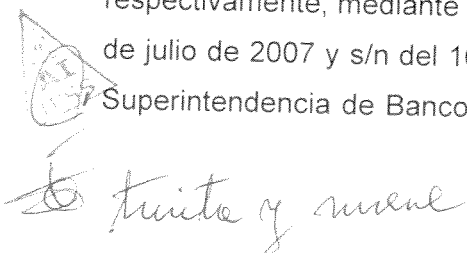 respectivamente, mediante
de julio de 2007 y s/n del 1
Superintendencia de Banco
treinta y nueve